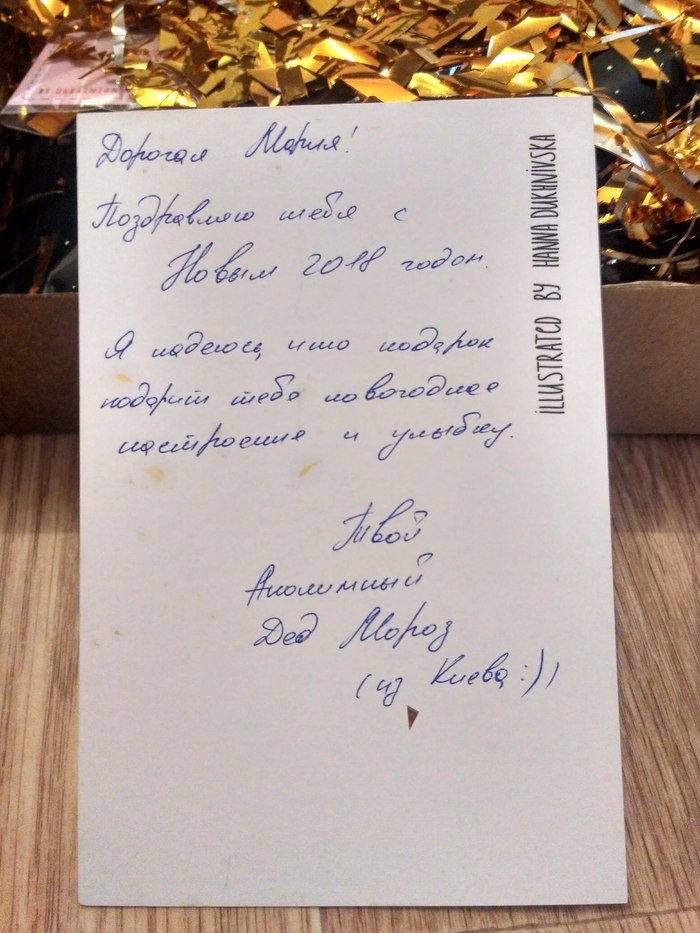 Дорогая Мария!
Поздравляю тебя с
Новым 2018 годом.
Я надеюсь, что подарок
подарит тебе новогоднее
настроение и улыбку.
Твой
Анонимный
Дед Мороз
(из Киева :))
ILLUSTRATED BY HANNA DUKHNIVSKA